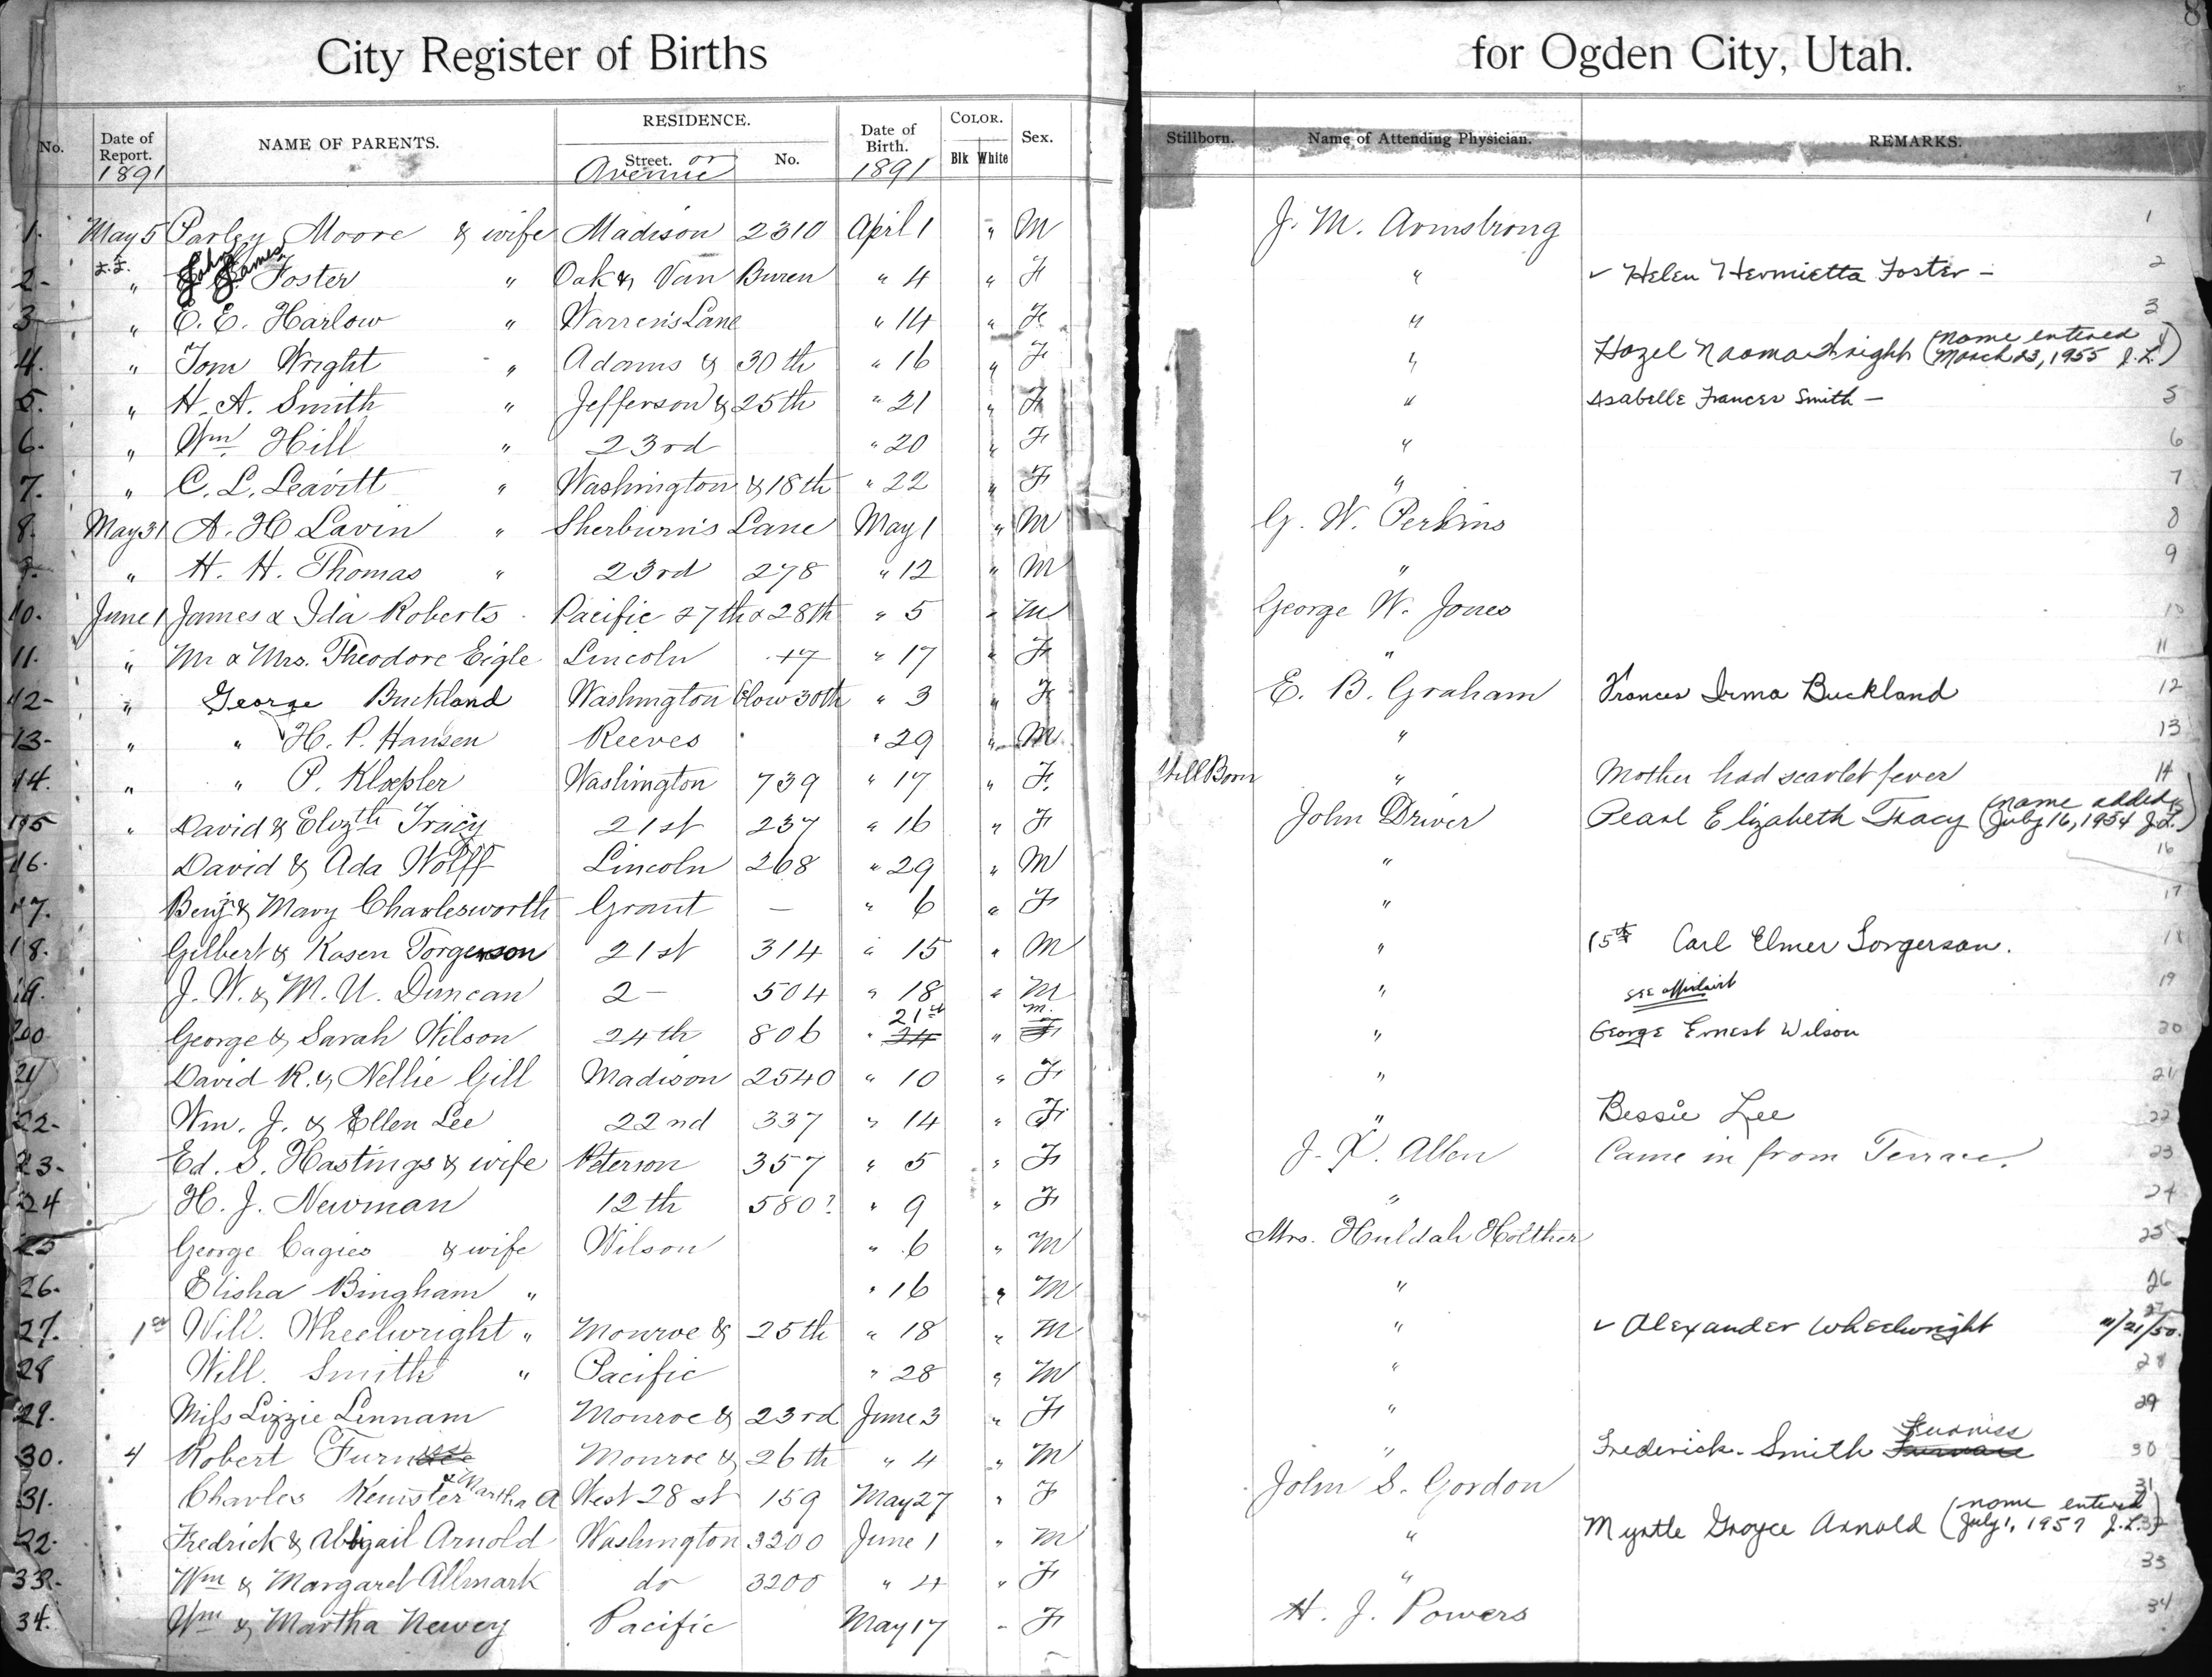 City Register of Births for Ogden City, Utah.
No. Date of Report. 1891 NAME OF PARENTS. RESIDENCE. Street. or Avenue No. Date of Birth. 1891 COLOR. Blk White Sex. Stillborn. Name of Attending Physician. REMARKS.
1. May 5 Parley Moore & wife Madison 2310 April 1 " M J. M. Armstrong 1
2- " John James Foster " Oak & Van Buren " 4 " F " ✓ Helen Hermietta Foster - 2
3 " E. E. Harlow " Warren's Lane " 14 " F " 3
4. " Tom Wright " Adams & 30th " 16 " F " Hazel Naoma Wright (Name entered March 23, 1955 J.L.)
5. " H. A. Smith " Jefferson & 25th " 21 " F " Isabelle Frances Smith - 5
6. " Wm Hill " 23rd " 20 " F " 6
7. " C. L. Leavitt " Washington & 18th " 22 " F " 7
8. May 31 A. H Lavin " Sherburn's Lane May 1 " M G. W. Perkins 8
9. " H. H. Thomas " 23rd 278 " 12 " M " 9
10. June 1 James & Ida Roberts Pacific 27th & 28th " 5 " M George W. Jones 10
11. " Mr & Mrs. Theodore Eigle Lincoln 17 " 17 " F " 11
12- " George Buckland Washington Below 30th " 3 " F E. B. Graham Frances Irma Buckland 12
13- " " H. P. Hansen Reeves " 29 " M " 13
14. " " P. Kloepler Washington 739 " 17 " F. Still Born " Mother had scarlet fever 14
15 " David & Elizth Tracy 21st 237 " 16 " F John Driver Pearl Elizabeth Tracy (name added July 16, 1954 J.L.)
16. David & Ada Wolff Lincoln 268 " 29 " M " 16
17. Benj. & Mary Charlesworth Grant — " 6 " F " 17
18. Gilbert & Kasen Torgerson 21st 314 " 15 " M " 15th Carl Elmer Torgerson. 18
19. J. W. & M. U. Duncan 2- 504 " 18 " M " 19
see affidavit
20 George & Sarah Wilson 24th 806 " 21st 24 " M. F " George Ernest Wilson 20
21 David R. & Nellie Gill Madison 2540 " 10 " F " 21
22- Wm. J. & Ellen Lee 22nd 337 " 14 " F " Bessie Lee 22
23- Ed. S. Hastings & wife Peterson 357 " 5 " F J. X. Allen Came in from Terrace. 23
24 H. J. Newman 12th 580? " 9 " F " 24
25 George Cagies & wife Wilson " 6 " M Mrs. Huldah Holther 25
26. Elisha Bingham " " 16 " M " 26
27. 1st Will. Wheelwright " Monroe & 25th " 18 " M " ✓ Alexander Wheelwright 11/21/50. 27
28 Will. Smith " Pacific " 28 " M " 28
29. Miss Lizzie Linnam Monroe & 23rd June 3 " F " 29
30. 4 Robert Furn Monroe & 26th " 4 " M " Frederick Smith Furniss 30
31. Charles Kenister & Martha A West 28 st 159 May 27 " F John S. Gordon 31
22. Fredrick & Abigail Arnold Washington 3200 June 1 " M " Myrtle Grayce Arnold (name entered July 1, 1957 J.L.)
33. Wm & Margaret Allmark do 3200 " 4 " F " 33
34. Wm & Martha Newey Pacific May 17 - F H. J. Powers 34